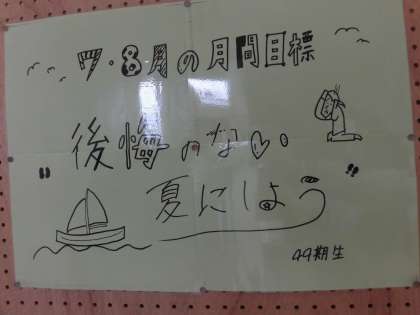 7・8月の月間目標
"後悔のない
夏にしよう"
49期生